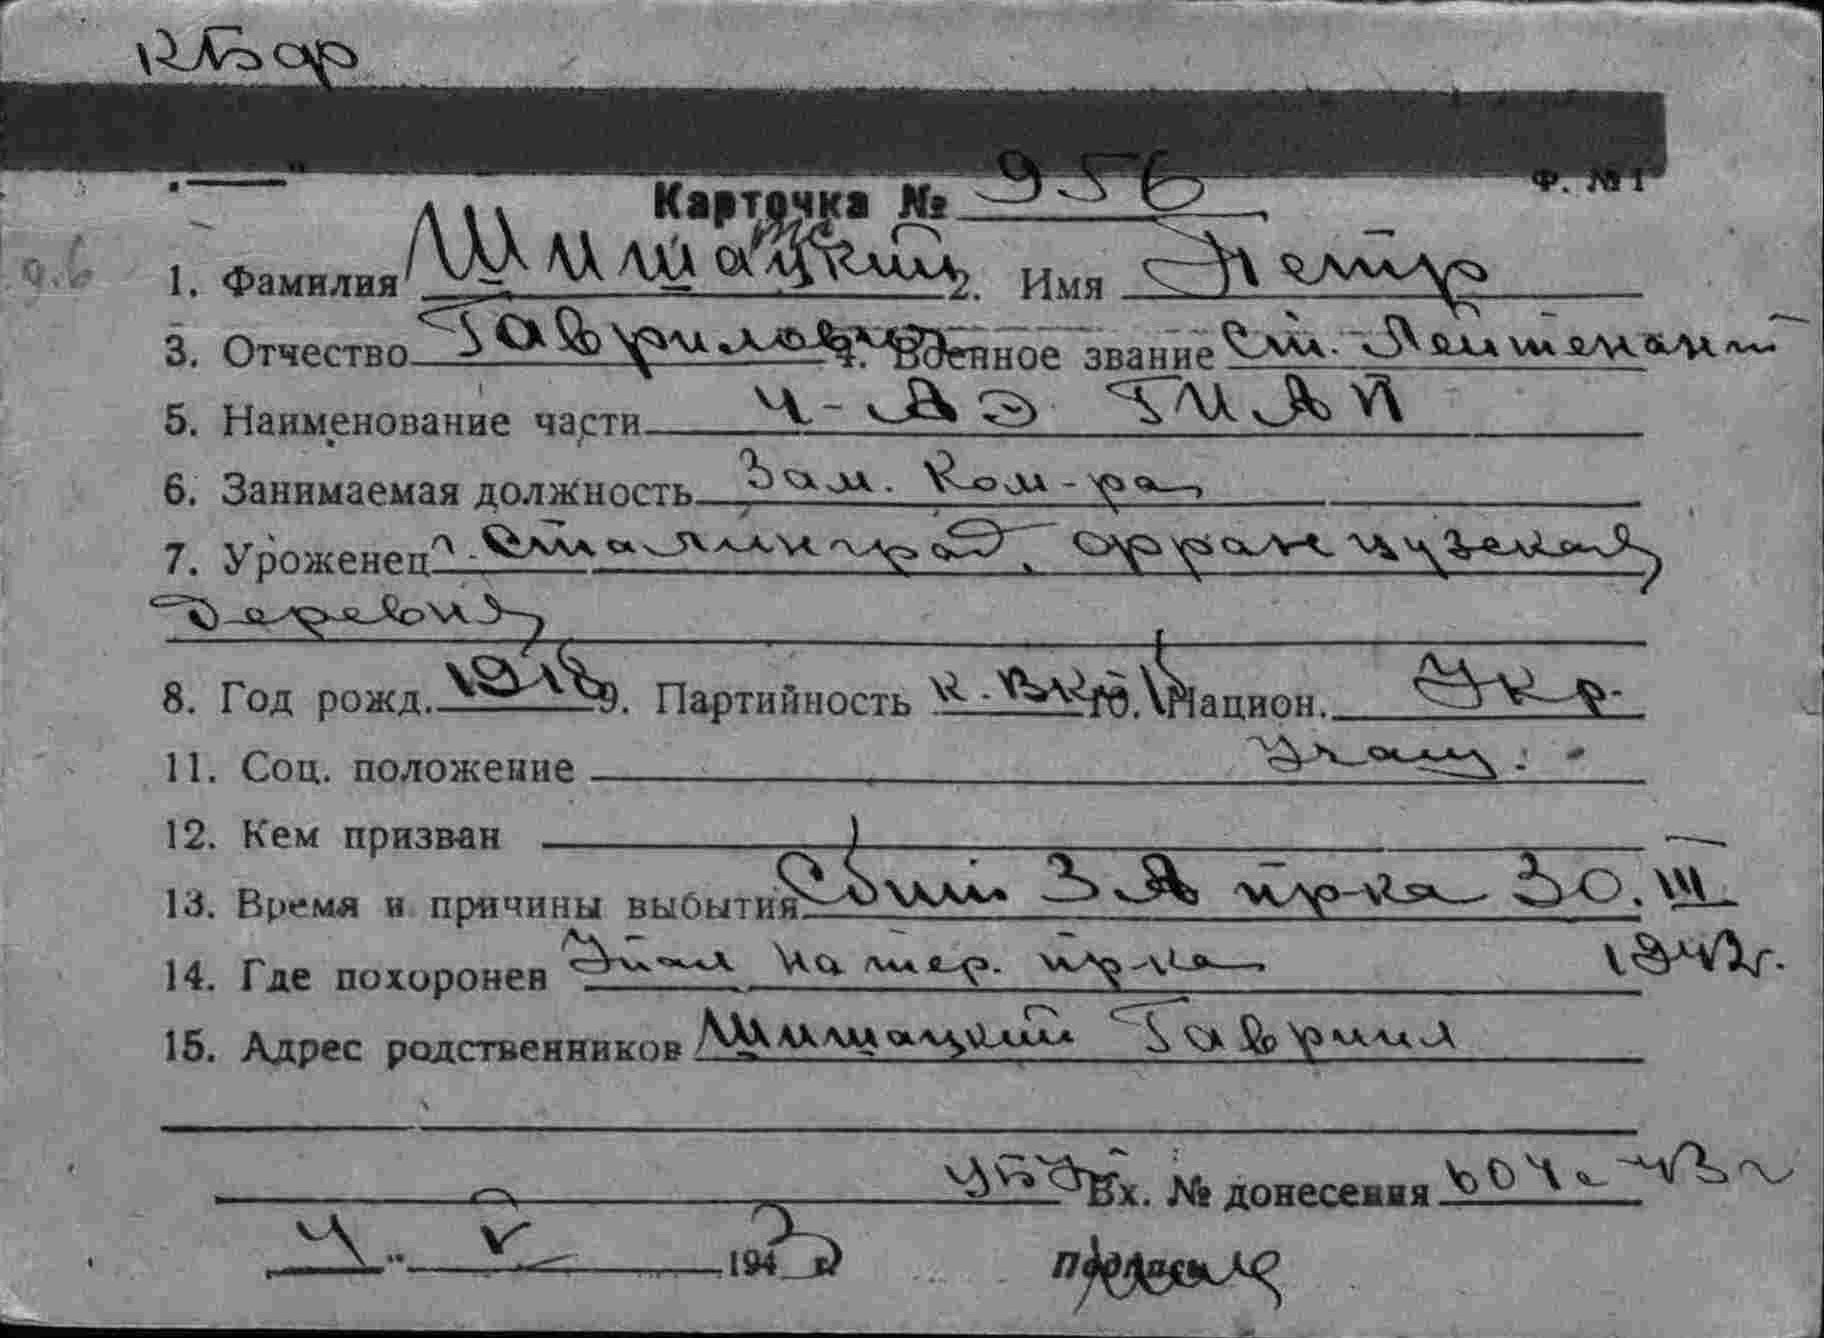 КБФ
Ф. №1
Карточка № 956
д.6
1. Фамилия Шишацкий 2. Имя Петр
3. Отчество Гаврилович 4. Военное звание Ст. Лейтенант
5. Наименование части 4-АЭ ГИАП
6. Занимаемая должность Зам. Ком-ра
7. Уроженец г. Сталинград, французская
деревня
8. Год рожд. 1918 9. Партийность к. ВКП/б 10. Национ. Укр.
11. Соц. положение Учащ.
12. Кем призван
13. Время и причины выбытия Сбит ЗА пр-ка 30.III
1943г.
14. Где похоронен Упал на тер. пр-ка
15. Адрес родственников Шишацкий Гавриил
УБУ Вх. № донесения 604с 43 г
4 " V 1943 г.
Подпись